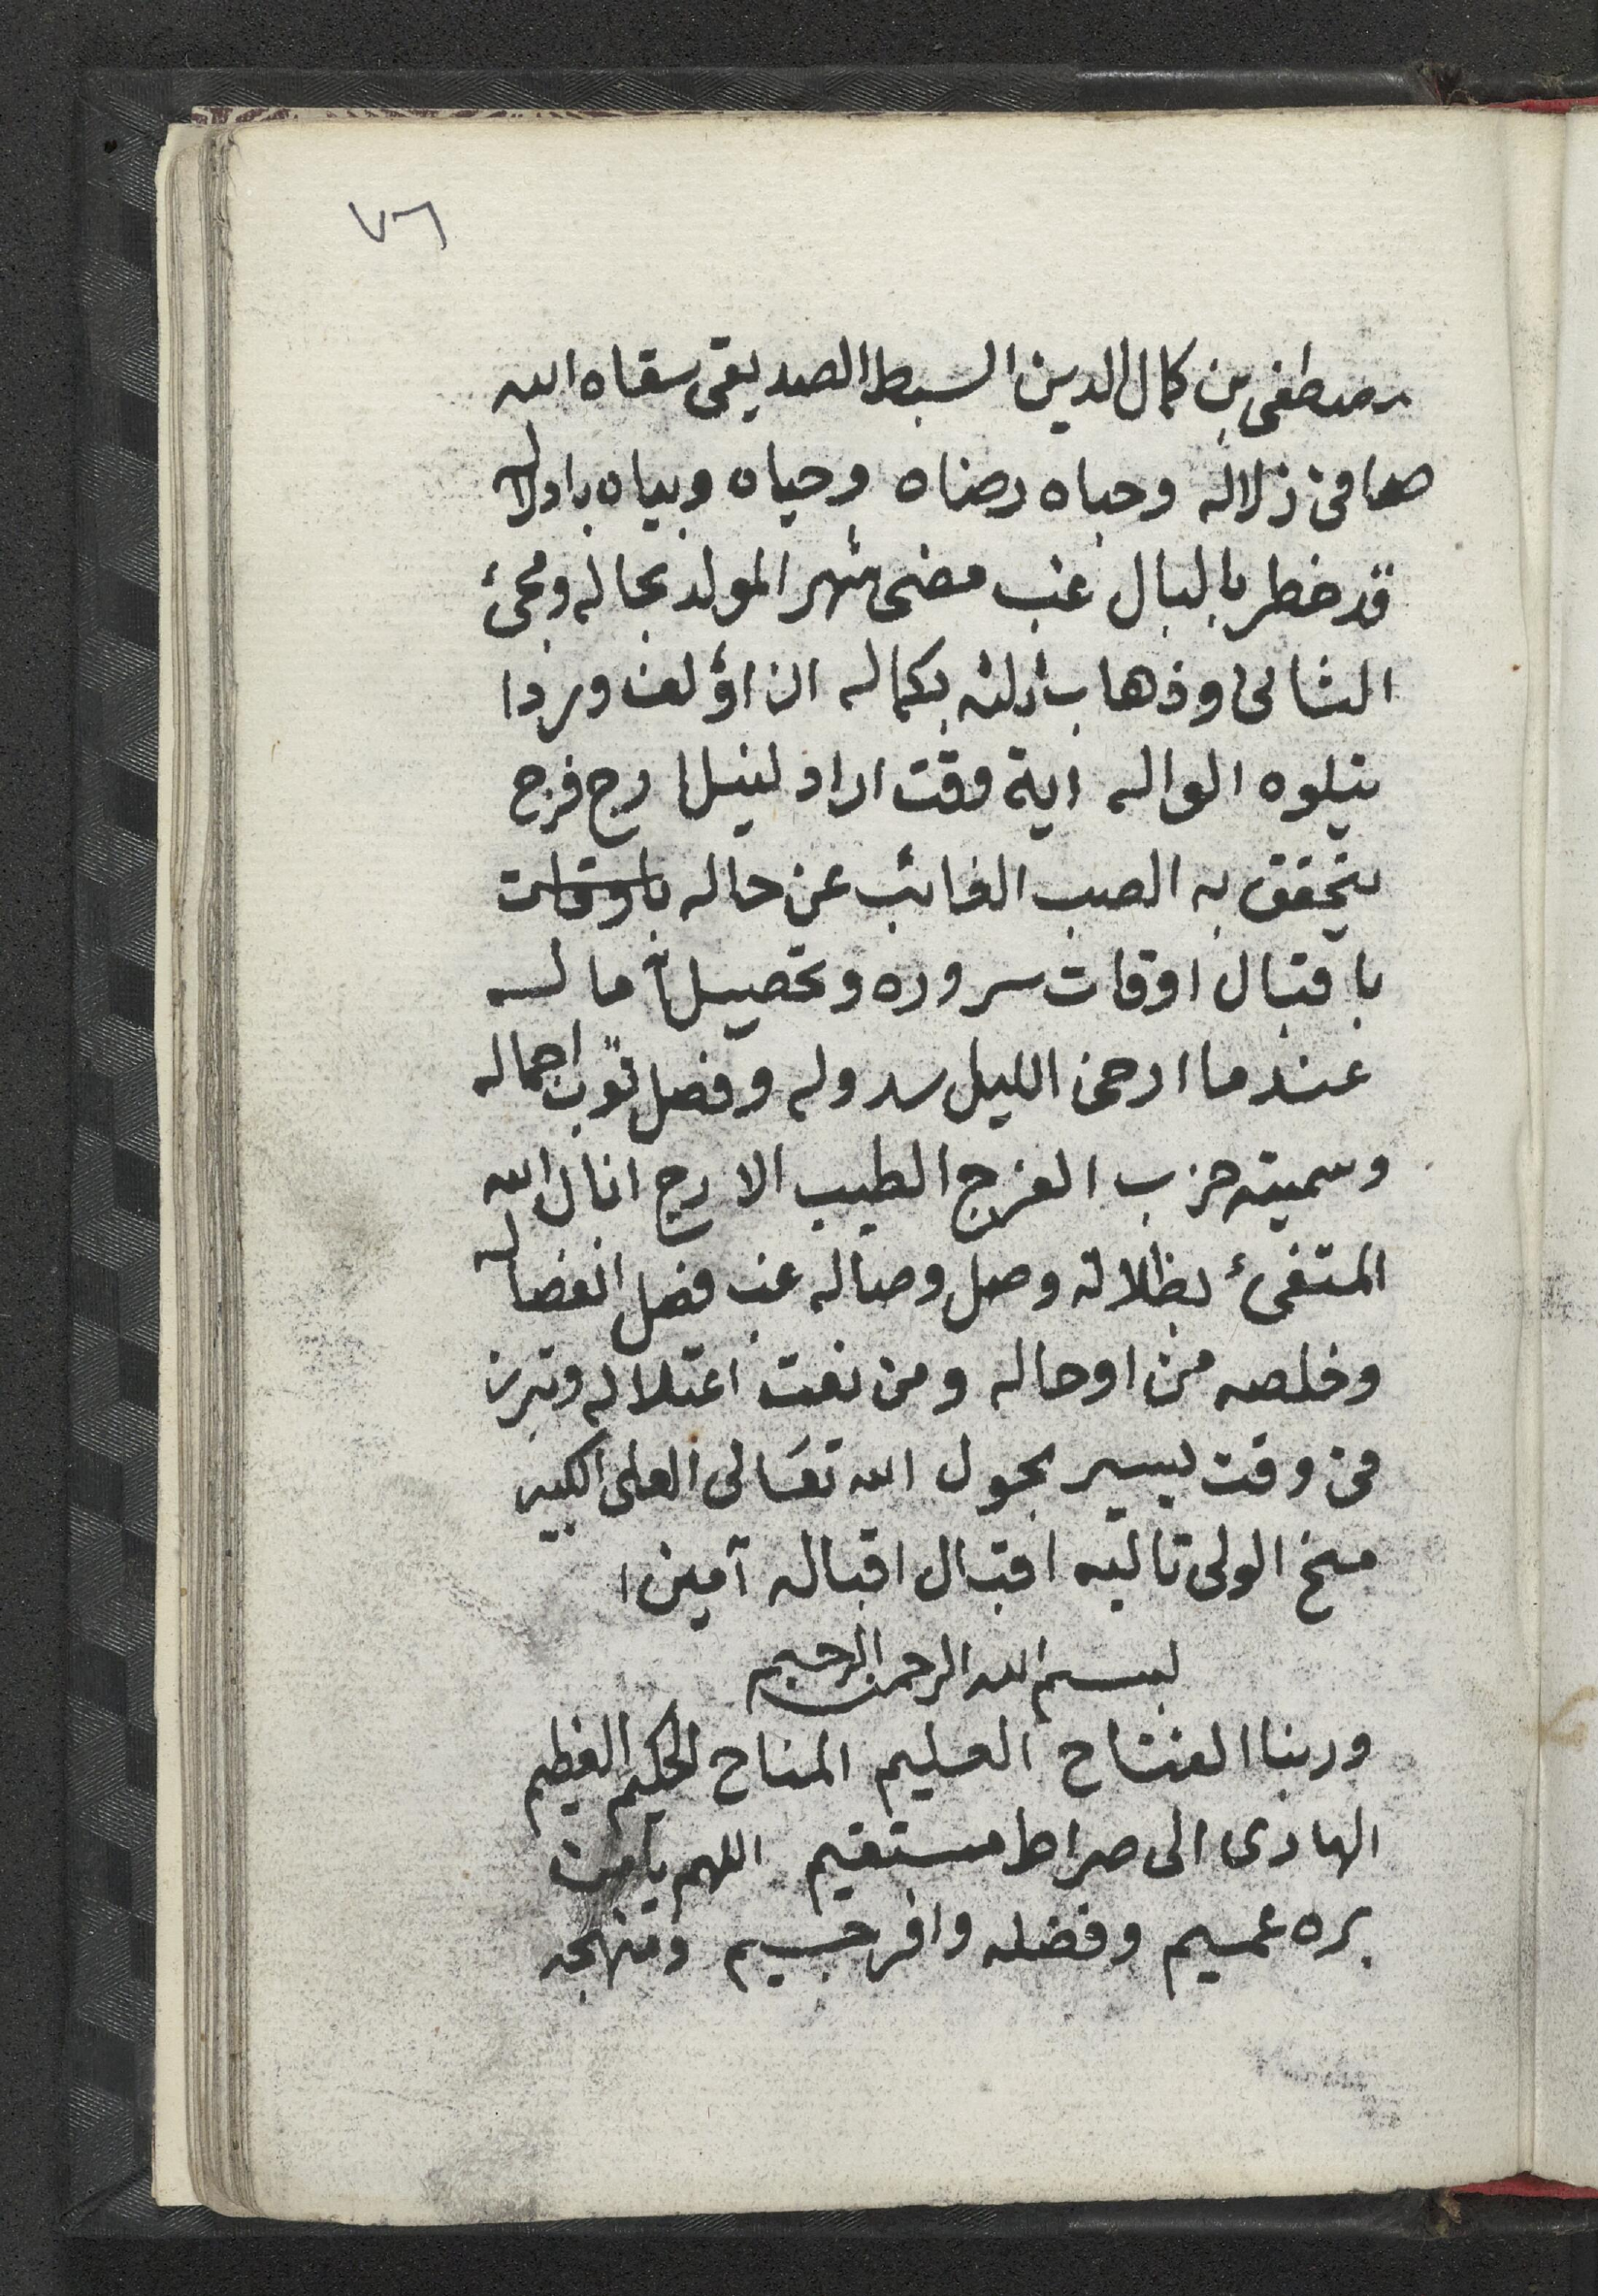 ٧٦
مصطفى بن كمال الدين السبط الصديقى سقاه الله
صافى زلاله وحباه رضاه وحياه وبياه بادلاله
قد خطر بالبال غب مضى شهر المولد بحاله ومجئ
الثانى وذهاب ثلثه بكماله ان اؤلف وردا
يتلوه الواله اية وقت اراد لنيل ارج فرج
يتحقق به الصب الغائب عن حاله باوقات
باقتبال اوقات سروره وتحصيل ما له
عندما ارخى الليل سدوله وفصل ثوب اجماله
وسميته حزب الفرج الطيب الارج انال الله
المتفئ بظلاله وصل وصاله غب فصل انفصاله
وخلصه من اوحاله ومن نعت اعتلاله وتبرز
فى وقت يسير بحول الله تعالى العلى الكبير
منح الولى تاليه اقتبال اقباله آمين ا
بسم الله الرحمن الرحيم
وربنا الفتاح العليم المناح الحكيم العظيم
الهادى الى صراط مستقيم اللهم يا من
بره عميم وفضله وافر جسيم ومنهجه